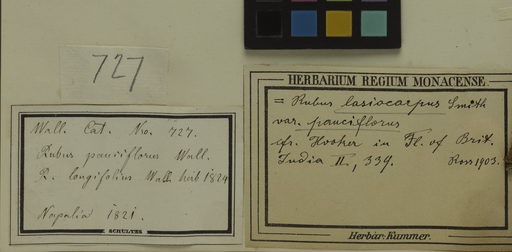 727
Wall. Cat. No. 727.
Rubus pauciflorus Wall.
R. longifolius Wall. herb 1824
Napalia 1821.
SCHULTES
HERBARIUM REGIUM MONACENSE.
= Rubus lasiocarpus Smith
var. pauciflorus
cfr. Hooker in Fl. of Brit.
India II, 339. Ross 1903.
Herbar-Kummer.